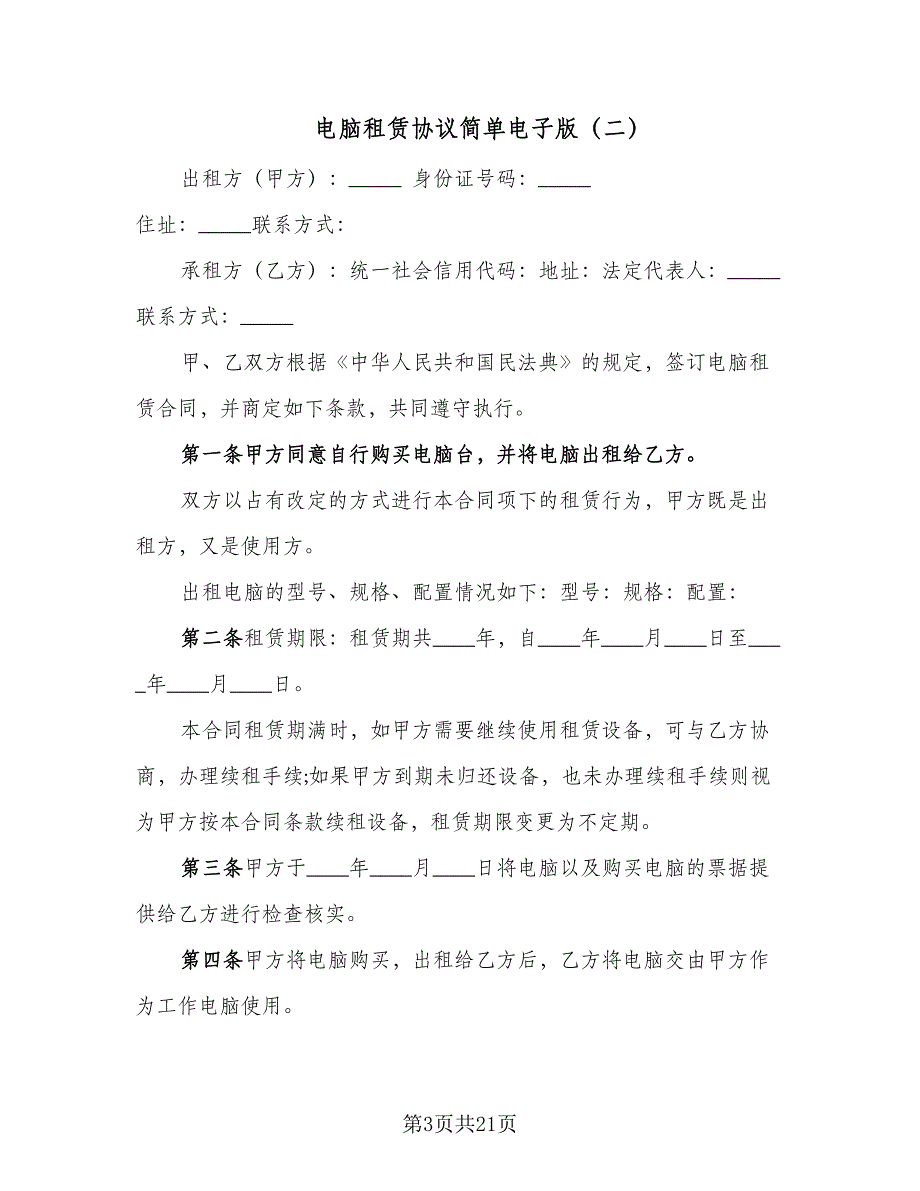 电脑租赁协议简单电子版（二）
出租方（甲方）：_____ 身份证号码：_____
住址：_____联系方式：
承租方（乙方）：统一社会信用代码：地址：法定代表人：_____
联系方式：_____
甲、乙双方根据《中华人民共和国民法典》的规定，签订电脑租
赁合同，并商定如下条款，共同遵守执行。
第一条甲方同意自行购买电脑台，并将电脑出租给乙方。
双方以占有改定的方式进行本合同项下的租赁行为，甲方既是出
租方，又是使用方。
出租电脑的型号、规格、配置情况如下：型号：规格：配置：
第二条租赁期限：租赁期共____年，自____年____月____日至___
_年____月____日。
本合同租赁期满时，如甲方需要继续使用租赁设备，可与乙方协
商，办理续租手续;如果甲方到期未归还设备，也未办理续租手续则视
为甲方按本合同条款续租设备，租赁期限变更为不定期。
第三条甲方于____年____月____日将电脑以及购买电脑的票据提
供给乙方进行检查核实。
第四条甲方将电脑购买，出租给乙方后，乙方将电脑交由甲方作
为工作电脑使用。
第3页共21页